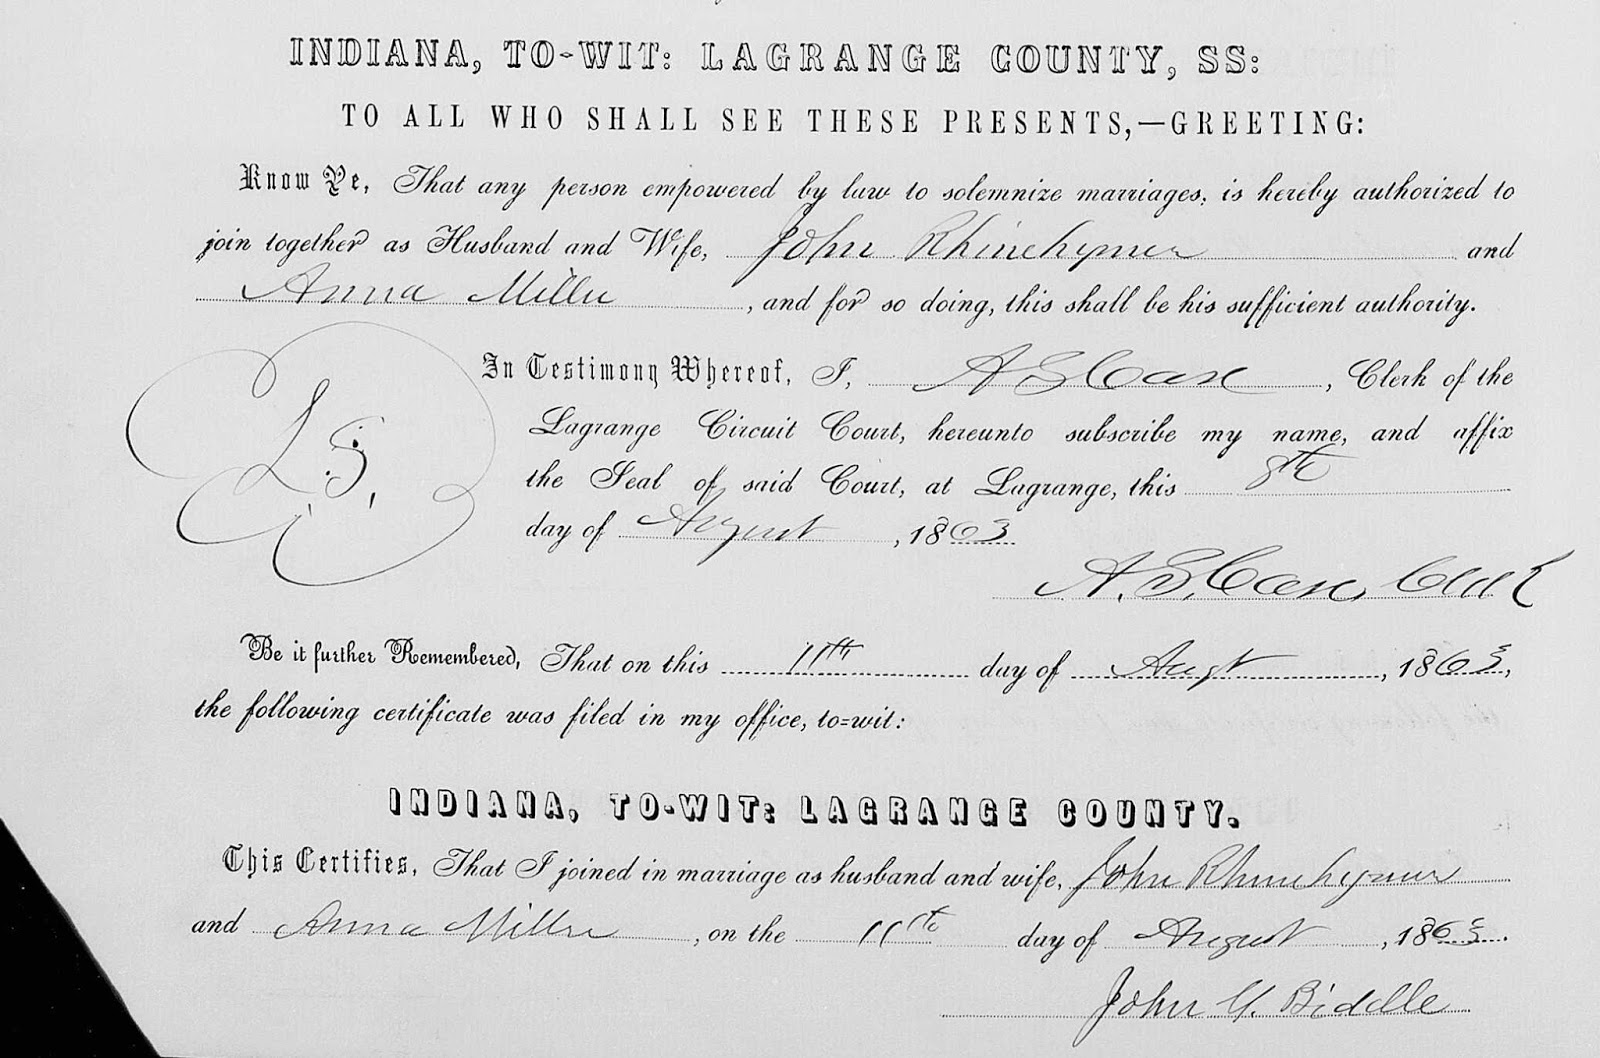 INDIANA, TO-WIT: LAGRANGE COUNTY, SS:
TO ALL WHO SHALL SEE THESE PRESENTS,—GREETING:
Know Ye, That any person empowered by law to solemnize marriages, is hereby authorized to
join together as Husband and Wife, John Rhinehymer and
Anna Miller, and for so doing, this shall be his sufficient authority.
In Testimony Whereof, I, A S Case, Clerk of the
L.S.
Lagrange Circuit Court, hereunto subscribe my name, and affix
the Seal of said Court, at Lagrange, this 8th
day of August, 1863
A. S. Case, Clerk
Be it further Remembered, That on this 11th day of Augt, 1863,
the following certificate was filed in my office, to=wit:
INDIANA, TO-WIT: LAGRANGE COUNTY.
This Certifies, That I joined in marriage as husband and wife, John Rhinehymer
and Anna Miller, on the 11th day of August, 1863.
John Y. Biddle